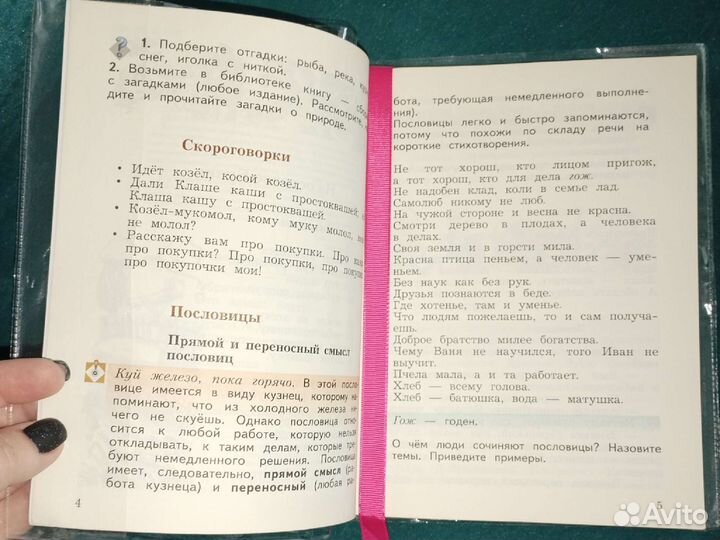 1. Подберите отгадки: рыба, река,
снег, иголка с ниткой.
2. Возьмите в библиотеке книгу —
с загадками (любое издание). Рассмотрите,
дите и прочитайте загадки о природе.
Скороговорки
• Идёт козёл, косой козёл.
• Дали Клаше каши с простоквашей;
Клаша кашу с простоквашей.
• Козёл-мукомол, кому муку молол,
не молол?
• Расскажу вам про покупки. Про
про покупки? Про покупки, про
про покупочки мои!
Пословицы
Прямой и переносный смысл
пословиц
Куй железо, пока горячо. В этой посло-
вице имеется в виду кузнец, которому на-
поминают, что из холодного железа ни-
чего не скуёшь. Однако пословица отно-
сится к любой работе, которую нельзя
откладывать, к таким делам, которые тре-
буют немедленного решения. Пословица
имеет, следовательно, прямой смысл (ра-
бота кузнеца) и переносный (любая ра-
4
бота, требующая немедленного выполне-
ния).
Пословицы легко и быстро запоминаются,
потому что похожи по складу речи на
короткие стихотворения.
Не тот хорош, кто лицом пригож,
а тот хорош, кто для дела гож.
Не надобен клад, коли в семье лад.
Самолюб никому не люб.
На чужой стороне и весна не красна.
Смотри дерево в плодах, а человека
в делах.
Своя земля и в горсти мила.
Красна птица пеньем, а человек — уме-
ньем.
Без наук как без рук.
Друзья познаются в беде.
Где хотенье, там и уменье.
Что людям пожелаешь, то и сам получа-
ешь.
Доброе братство милее богатства.
Чему Ваня не научился, того Иван не
выучит.
Пчела мала, а и та работает.
Хлеб — всему голова.
Хлеб — батюшка, вода — матушка.
Гож — годен.
О чём люди сочиняют пословицы? Назовите
темы. Приведите примеры.
5
Avito